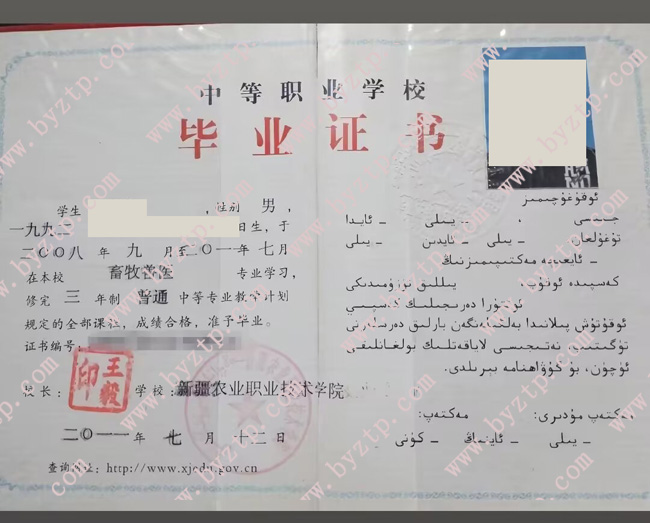 中等职业学校
毕业证书
学生 ，性别 男 ，
一九九二 日生，于
二〇〇八 年 九 月至二〇一一年 七月
在本校 畜牧兽医 专业学习，
修完 三 年制 普通 中等专业教学计划
规定的全部课程，成绩合格，准予毕业。
证书编号：
校长： 王毅印 学校：新疆农业职业技术学院
二〇一一 年 七 月 十二 日
查询网址：http://www.xjedu.gov.cn
ئوقۇغۇچىمىز
جىنسى ، ـ يىلى ـ ئايدا
تۇغۇلغان ـ يىلى ـ ئايدىن ـ يىلى
ـ ئايغىچە مەكتىپىمىزنىڭ
كەسپىدە ئوقۇپ، يىللىق تۈزۈمدىكى
ئوتتۇرا دەرىجىلىك كەسپىي
ئوقۇتۇش پىلانىدا بەلگىلەنگەن بارلىق دەرسلەرنى
تۈگىتىپ، نەتىجىسى لاياقەتلىك بولغانلىقى
ئۈچۈن، بۇ گۇۋاھنامە بېرىلدى.
مەكتەپ مۇدىرى: مەكتەپ:
ـ يىلى ـ ئاينىڭ ـ كۈنى
www.byztp.com